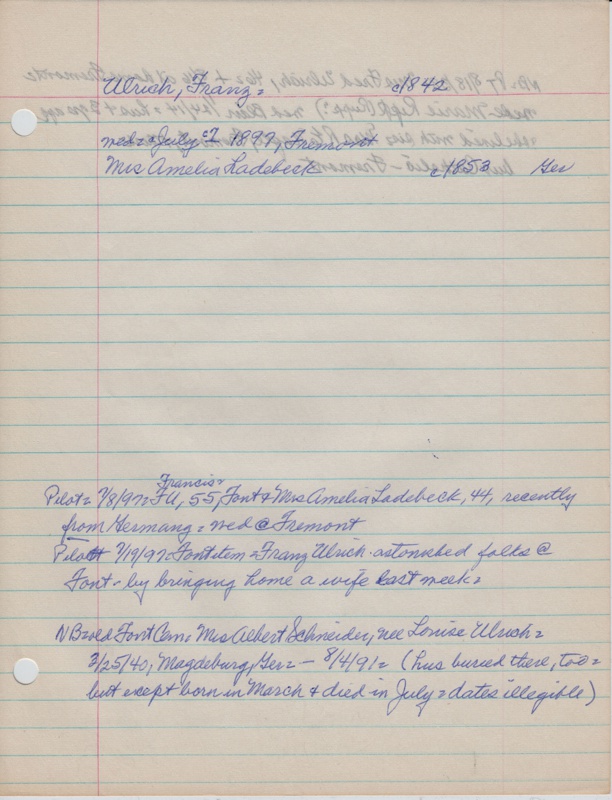 Ulrich, Franz = c/1842
wed = July c7 1897, Fremont
Mrs Amelia Ladebeck c/1853 Ger
Francis =
Pilot = 7/8/97 = FU, 55, Font & Mrs Amelia Ladebeck, 44, recently
from Germany = wed @ Fremont
Pilot 7/19/97 = Font item = Franz Ulrich astonished folks @
Font - by bringing home a wife last week =
NB = old Font Cem = Mrs Albert Schneider, nee Louise Ulrich =
3/25/40, Magdeburg, Ger = - 8/4/91 = (hus buried there, too =
but except born in March & died in July = dates illegible)